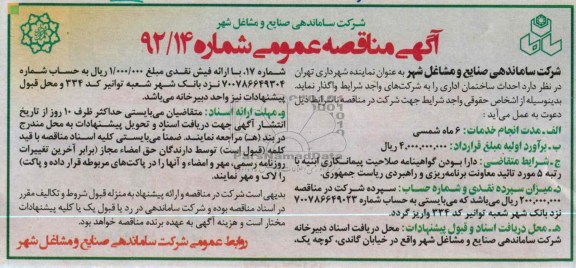 شرکت ساماندهی صنایع و مشاغل شهر
آگهی مناقصه عمومی شماره ۹۲/۱۴
شرکت ساماندهی صنایع و مشاغل شهر به عنوان نماینده شهرداری تهران
در نظر دارد احداث ساختمان اداری را به شرکت‌های واجد شرایط واگذار نماید.
بدینوسیله از اشخاص حقوقی واجد شرایط جهت شرکت در مناقصه با شرایط ذیل
دعوت به عمل می‌آید:
الف ـ مدت انجام خدمات: ۶ ماه شمسی
ب ـ برآورد اولیه مبلغ قرارداد: ۴/۰۰۰/۰۰۰/۰۰۰ ریال
ج ـ شرایط متقاضی: دارا بودن گواهینامه صلاحیت پیمانکاری ابنیه با
رتبه ۵ مورد تائید معاونت برنامه‌ریزی و راهبردی ریاست جمهوری.
د ـ میزان سپرده نقدی و شماره حساب: سپرده شرکت در مناقصه
۲۰۰/۰۰۰/۰۰۰ ریال می‌باشد که می‌بایستی به حساب شماره ۷۰۰۷۸۶۶۴۹۰۲۳
نزد بانک شهر شعبه توانیر کد ۳۳۴ واریز گردد.
هـ ـ محل دریافت اسناد و قبول پیشنهادات: محل دریافت اسناد دبیرخانه
شرکت ساماندهی صنایع و مشاغل شهر واقع در خیابان گاندی، کوچه یک،
شماره ۱۷، با ارائه فیش نقدی مبلغ ۱/۰۰۰/۰۰۰ ریال به حساب شماره
۷۰۰۷۸۶۶۴۹۳۰۴ نزد بانک شهر شعبه توانیر کد ۳۳۴ و محل قبول
پیشنهادات نیز واحد دبیرخانه می‌باشد.
و ـ مهلت ارائه اسناد: متقاضیان می‌بایستی حداکثر ظرف ۱۰ روز از تاریخ
انتشار آگهی جهت دریافت اسناد و تحویل پیشنهادات به محل مندرج
در بند (هـ) مراجعه نمایند. ضمنا می‌بایستی کلیه اسناد مناقصه با قید
کلمه (قبول است) توسط دارندگان حق امضاء مجاز (برابر آخرین تغییرات
روزنامه رسمی، مهر و امضاء و آنها را در پاکت‌های مربوطه قرار داده و پاکت)
را لاک و مهر نمایند.
بدیهی است شرکت در مناقصه و ارائه پیشنهاد به منزله قبول شروط و تکالیف مقرر
در اسناد مناقصه بوده و شرکت ساماندهی در رد یا قبول یک یا کلیه پیشنهادات
مختار است و هزینه آگهی به عهده برنده مناقصه خواهد بود.
روابط عمومی شرکت ساماندهی صنایع و مشاغل شهر